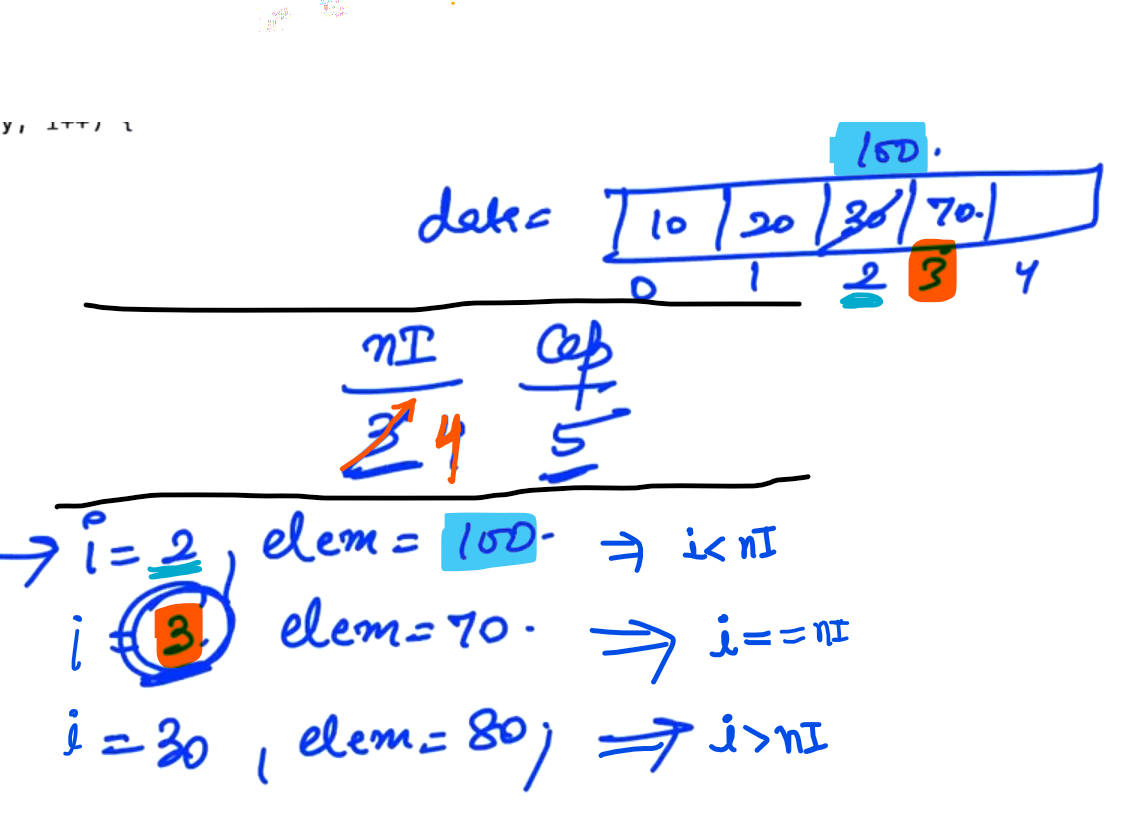 y, i++) {
100.
data= 10 20 30 70.
0 1 2 3 4
nI Cap
3 4 5
i = 2, elem = 100. ⇒ i < nI
i = 3. elem = 70. ⇒ i == nI
i = 30, elem = 80; ⇒ i > nI